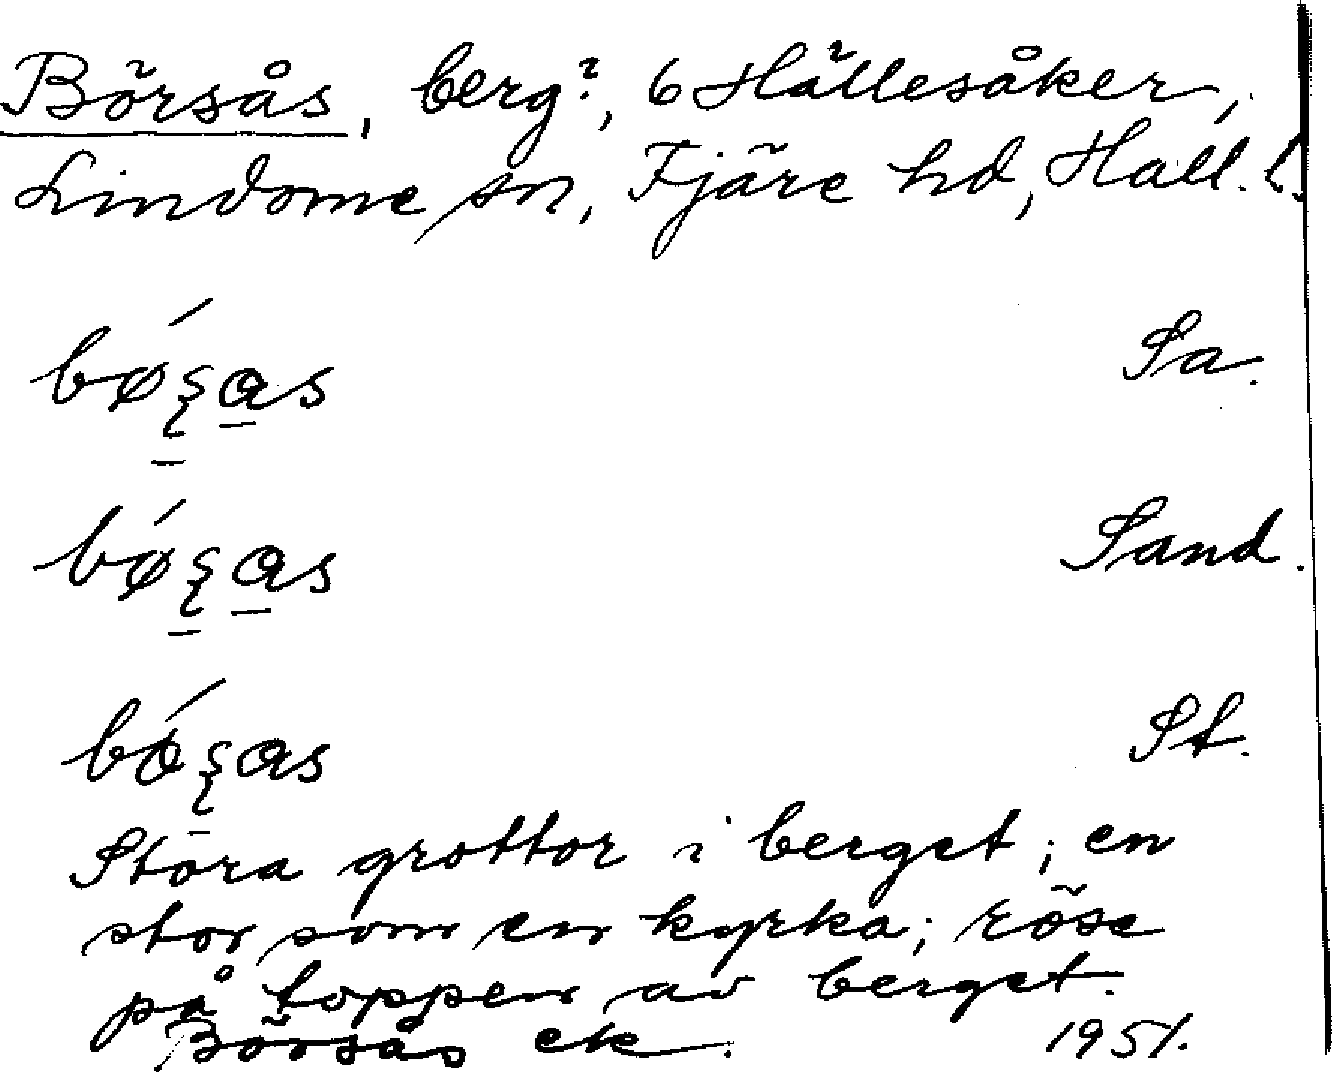 Börsås, berg?, 6 Hällesåker,
Lindome sn, Fjäre hd, Hall. l.
Sa.
Sand.
St.
Stora grottor i berget; en
stor som en kyrka; röse
på toppen av berget.
Börsås ek. 1951.